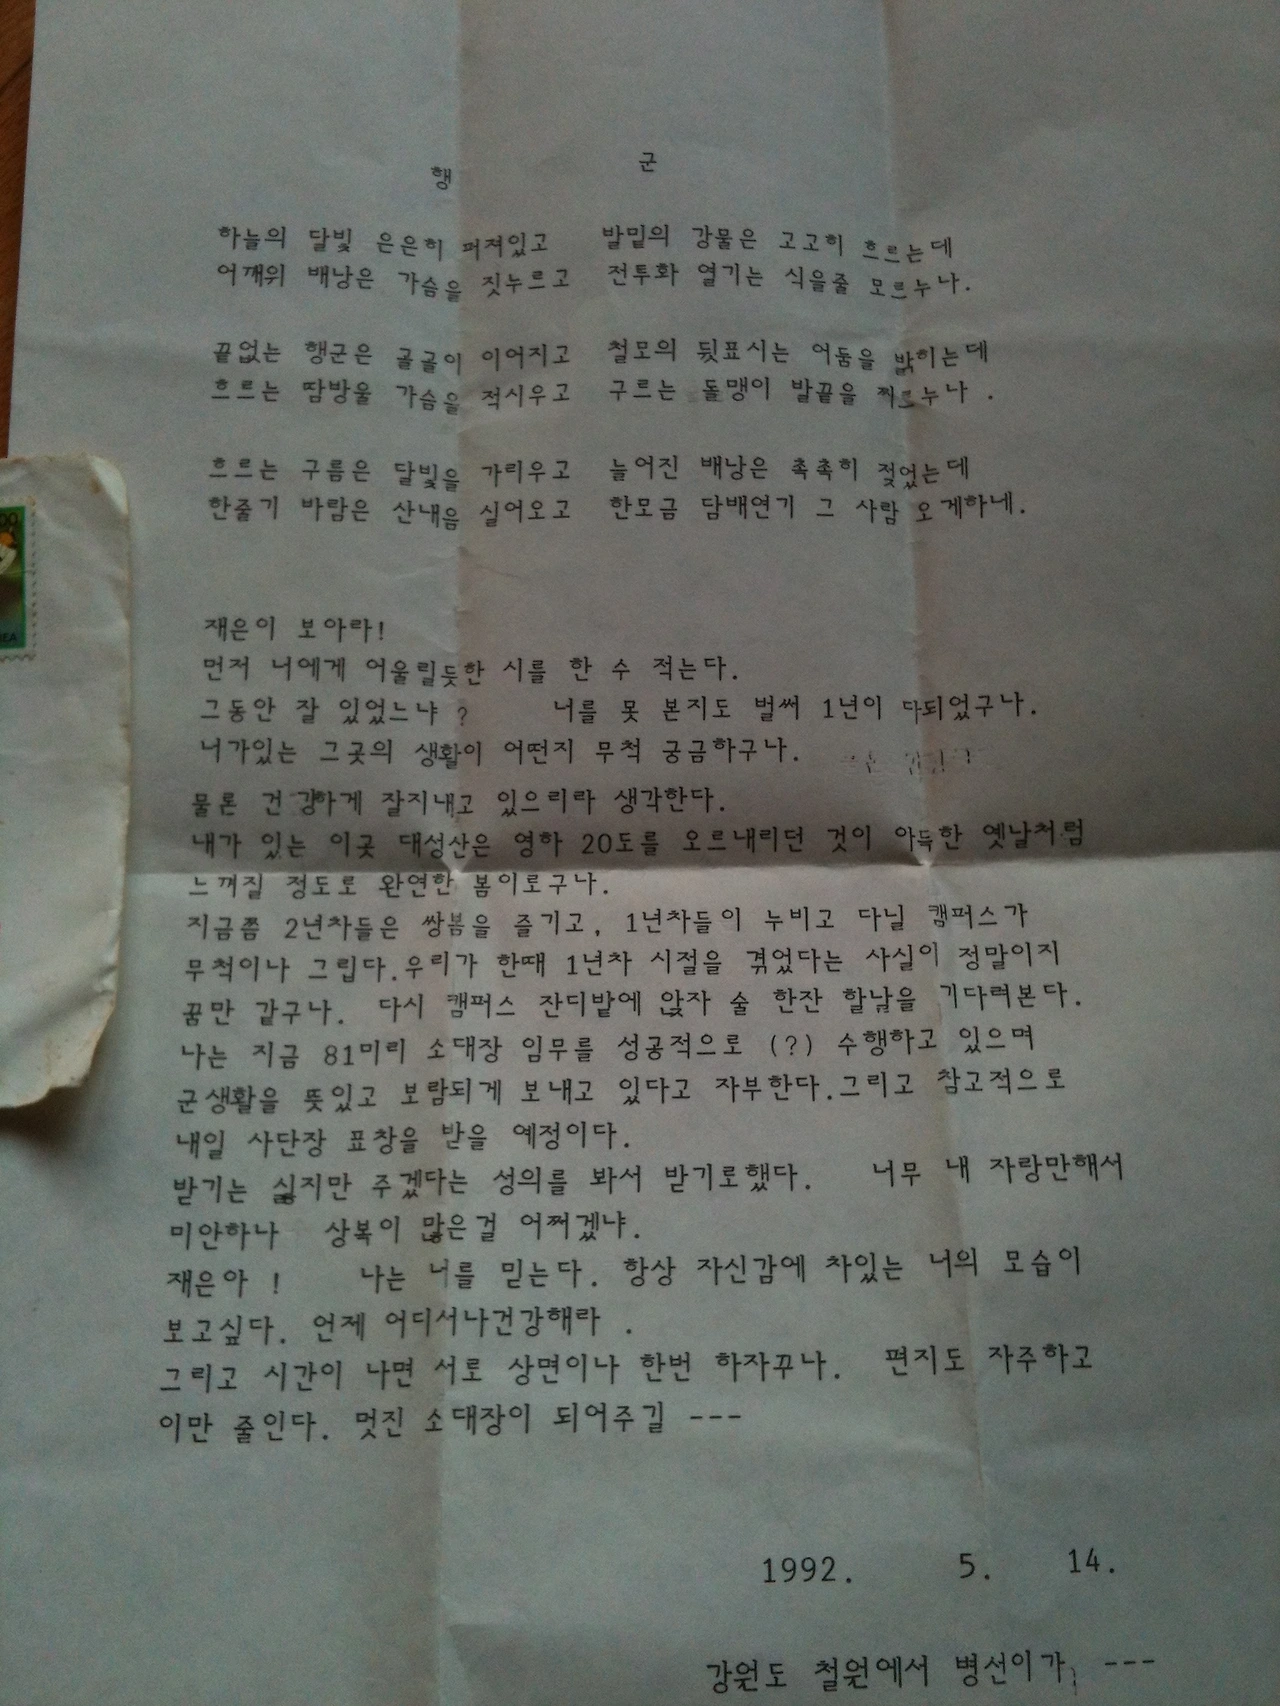 행 군
하늘의 달빛 은은히 퍼져있고 발밑의 강물은 고고히 흐르는데
어깨위 배낭은 가슴을 짓누르고 전투화 열기는 식을줄 모르누나.
끝없는 행군은 골골이 이어지고 철모의 뒷표시는 어둠을 밝히는데
흐르는 땀방울 가슴을 적시우고 구르는 돌맹이 발끝을 찌르누나 .
흐르는 구름은 달빛을 가리우고 늘어진 배낭은 촉촉히 젖었는데
한줄기 바람은 산내음 실어오고 한모금 담배연기 그 사람 오게하네.
재은이 보아라!
먼저 너에게 어울릴듯한 시를 한 수 적는다.
그동안 잘 있었느냐 ? 너를 못 본지도 벌써 1년이 다되었구나.
너가있는 그곳의 생활이 어떤지 무척 궁금하구나.
물론 건강하게 잘지내고 있으리라 생각한다.
내가 있는 이곳 대성산은 영하 20도를 오르내리던 것이 아득한 옛날처럼
느껴질 정도로 완연한 봄이로구나.
지금쯤 2년차들은 쌍봄을 즐기고, 1년차들이 누비고 다닐 캠퍼스가
무척이나 그립다.우리가 한때 1년차 시절을 겪었다는 사실이 정말이지
꿈만 같구나. 다시 캠퍼스 잔디밭에 앉자 술 한잔 할날을 기다려본다.
나는 지금 81미리 소대장 임무를 성공적으로 (?) 수행하고 있으며
군생활을 뜻있고 보람되게 보내고 있다고 자부한다.그리고 참고적으로
내일 사단장 표창을 받을 예정이다.
받기는 싫지만 주겠다는 성의를 봐서 받기로했다. 너무 내 자랑만해서
미안하나 상복이 많은걸 어쩌겠냐.
재은아 ! 나는 너를 믿는다. 항상 자신감에 차있는 너의 모습이
보고싶다. 언제 어디서나건강해라 .
그리고 시간이 나면 서로 상면이나 한번 하자꾸나. 편지도 자주하고
이만 줄인다. 멋진 소대장이 되어주길 ---
1992. 5. 14.
강원도 철원에서 병선이가 ---